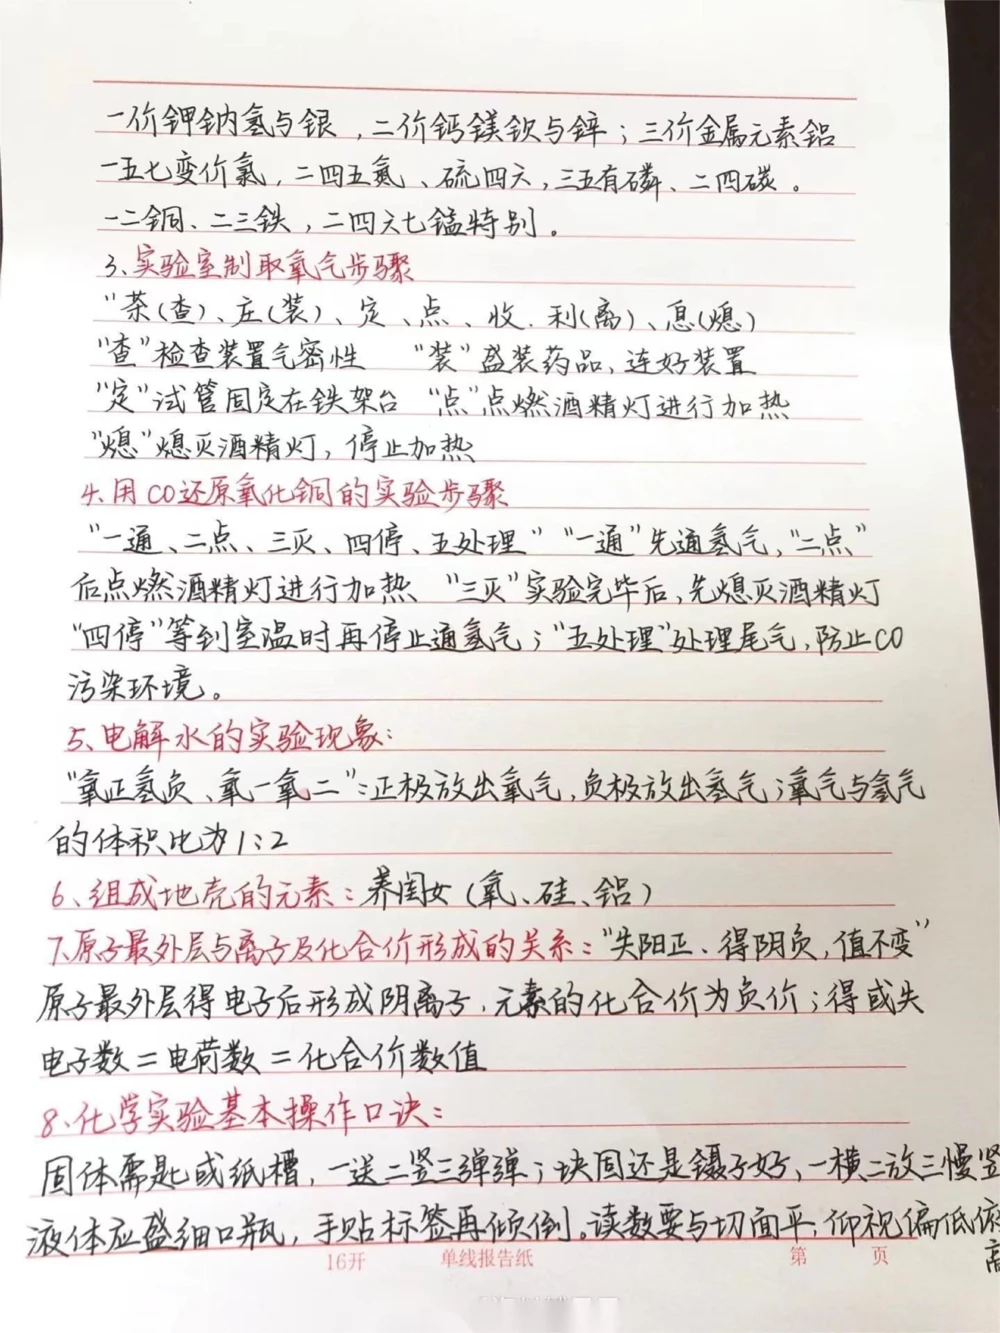 一价钾钠氢与银，二价钙镁钡与锌；三价金属元素铝
一五七变价氯，二四五氮、硫四六，三五有磷、二四碳。
一二铜、二三铁，二四六七锰特别。
3、实验室制取氧气步骤
“茶(查)、庄(装)、定、点、收.利(离)、息(熄)
“查”检查装置气密性 “装”盛装药品,连好装置
“定”试管固定在铁架台 “点”点燃酒精灯进行加热
“熄”熄灭酒精灯，停止加热
4.用CO还原氧化铜的实验步骤
“一通、二点、三灭、四停、五处理” “一通”先通氢气，“二点”
后点燃酒精灯进行加热 “三灭”实验完毕后,先熄灭酒精灯
“四停”等到室温时再停止通氢气；“五处理”处理尾气,防止CO
污染环境。
5、电解水的实验现象:
“氧正氢负、氧一氧二”:正极放出氧气,负极放出氢气；氧气与氢气
的体积比为1:2
6、组成地壳的元素：养闺女(氧、硅、铝)
7.原子最外层与离子及化合价形成的关系：“失阳正.得阴负,值不变”
原子最外层得电子后形成阴离子,元素的化合价为负价；得或失
电子数=电荷数=化合价数值
8、化学实验基本操作口诀：
固体需匙或纸槽，一送二竖三弹弹；块固还是镊子好，一横二放三慢竖
液体应盛细口瓶，手贴标签再倾倒。读数要与切面平，仰视偏低俯
高
16开 单线报告纸 第 页